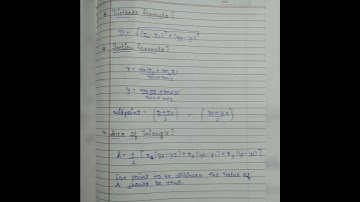 * Distance Formula:
D = √(x₂ - x₁)² + (y₂ - y₁)²
* Section Formula:
x = m₁x₂ + m₂x₁ / m₁ + m₂
y = m₁y₂ + m₂y₁ / m₁ + m₂
midpoint = (x₁ + x₂ / 2), (y₁ + y₂ / 2)
* Area of Triangle:
A = 1/2 [x₁(y₂ - y₃) + x₂(y₃ - y₁) + x₃(y₁ - y₂)]
For point to be collinear the value of
A should be zero.